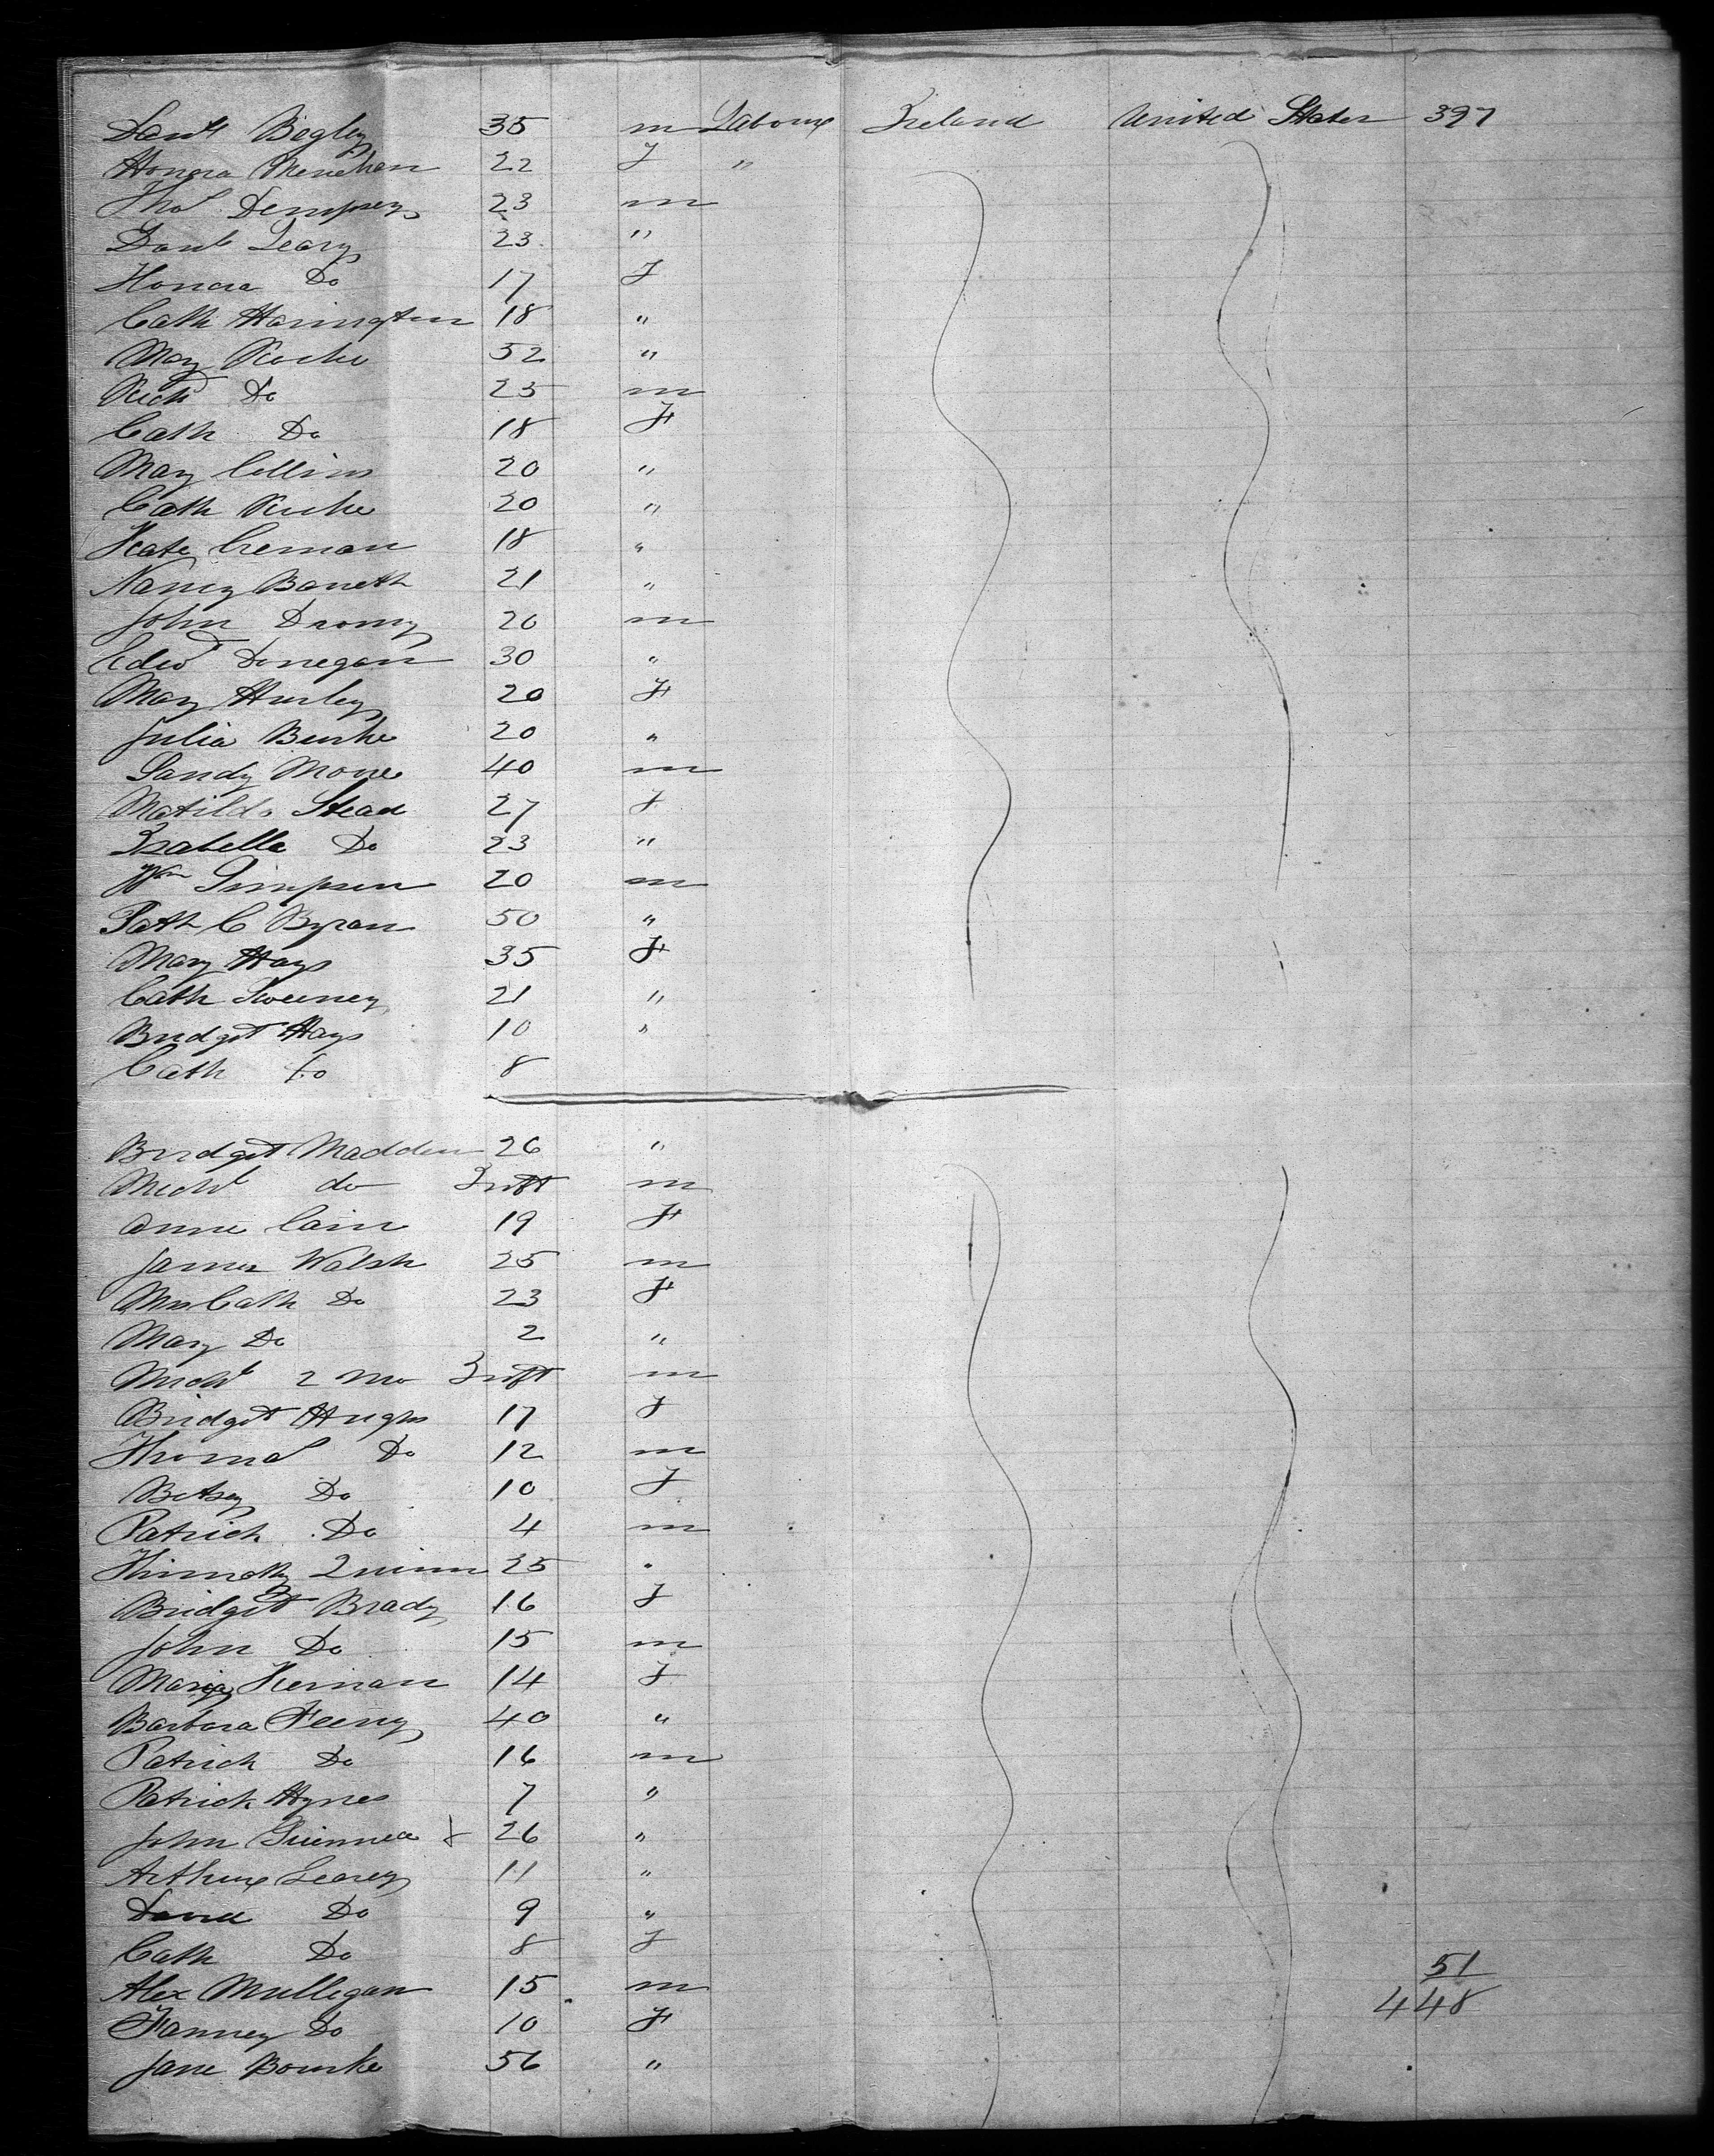 Danl Begley 35 m Labourer Ireland United States 397
Honora Menehan 22 F "
Thos Dempsey 23 m
Danl Leary 23 "
Honora Do 17 F
Cath Harrington 18 "
Mary Roche 52 "
Richd Do 25 m
Cath Do 18 F
Mary Collins 20 "
Cath Roche 20 "
Kate Creman 18 "
Nancy Barrett 21 "
John Dromy 20 m
Edwd Donegan 30 "
Mary Hurley 20 F
Julia Burke 20 "
Sandy Mone 40 m
Matilda Stead 27 F
Isabella Do 23 "
Wm Simpson 20 m
Patk C Byran 50 "
Mary Hays 35 F
Cath Sweeney 21 "
Bridget Hays 10 "
Cath Do 8
Bridget Madden 26 "
Michl do Inft m
Anne Cain 19 F
James Walsh 25 m
Mrs Cath Do 23 F
Mary Do 2 "
Michl 2 mo Inft m
Bridget Hughs 17 F
Thomas Do 12 m
Betsey Do 10 F
Patrick Do 4 m
Thimothy Quinn 25 "
Bridget Brady 16 F
John Do 15 m
Maria Kernan 14 F
Barbara Feeny 40 "
Patrick Do 16 m
Patrick Hynes 7 "
John 26 "
Arthur Learey 11 "
David Do 9 "
Cath Do 8 F
51
Alex Mullegan 15 m 448
Fanney Do 10 F
Jane Bourke 56 "